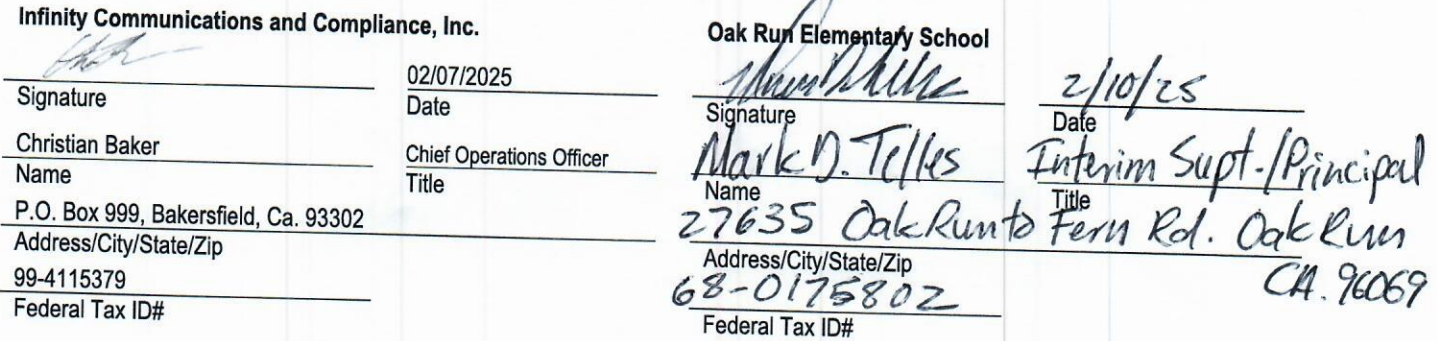 Infinity Communications and Compliance, Inc.
02/07/2025
Signature
Date
Christian Baker
Chief Operations Officer
Name
Title
P.O. Box 999, Bakersfield, Ca. 93302
Address/City/State/Zip
99-4115379
Federal Tax ID#
Oak Run Elementary School
2/10/25
Signature
Date
Mark D. Telles
Interim Supt./Principal
Name
Title
27635 Oak Run to Fern Rd. Oak Run
CA. 96069
Address/City/State/Zip
68-0175802
Federal Tax ID#